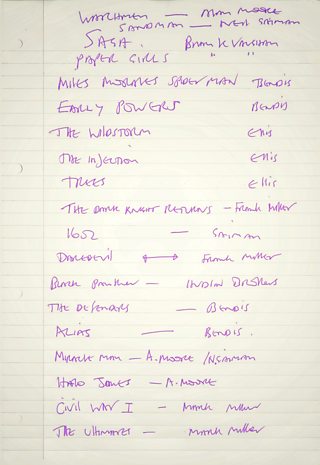 WATCHMEN — ALAN MOORE
SANDMAN — NEIL GAIMAN
SAGA. BRIAN K VAUGHAN
PAPER GIRLS " "
MILES MORALES SPIDERMAN BENDIS
EARLY POWERS BENDIS
THE WILDSTORM Ellis
THE INJECTION Ellis
TREES Ellis
THE DARK KNIGHT RETURNS — FRANK MILLER
1602 — GAIMAN
DAREDEVIL ↔ FRANK MILLER
BLACK PANTHER —
THE DEFENDERS — BENDIS
ALIAS — BENDIS.
MIRACLE MAN — A.MOORE /N.GAIMAN
HALO JONES — A.MOORE
CIVIL WAR I — MARK MILLAR
THE ULTIMATES — MARK MILLAR